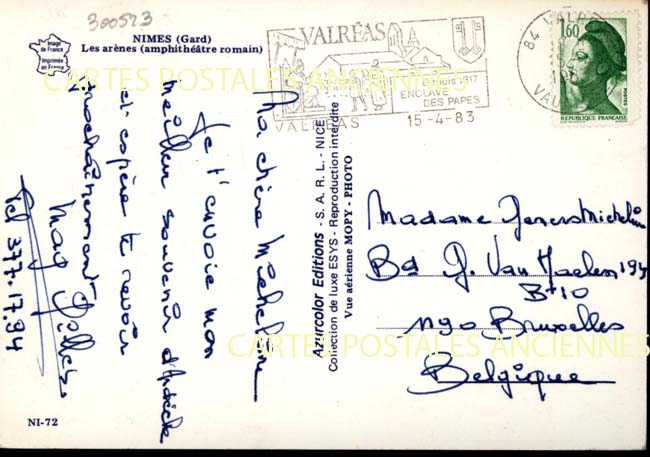 300523
NIMES (Gard)
Les arènes (amphithéâtre romain)
Image de France
Imprimée en France
CARTES POSTALES ANCIENNES
VALRÉAS
depuis 1317
ENCLAVE
DES PAPES
VALREAS
15-4-83
84 VALR
VAU
1,60
POSTES
REPUBLIQUE FRANÇAISE
Ma chère Micheline
Je t'envoie mon
meilleur souvenir d'Ardèche
et espère te revoir
prochainement
Tel 377.17.94
Azurcolor Editions - S. A. R. L. - NICE
Collection de luxe ESYS - Reproduction interdite
Vue aérienne MOPY - PHOTO
Madame
Bd J. Van Haelen 194
B 10
1190 Bruxelles
Belgique
CARTES POSTALES ANCIENNES
NI-72